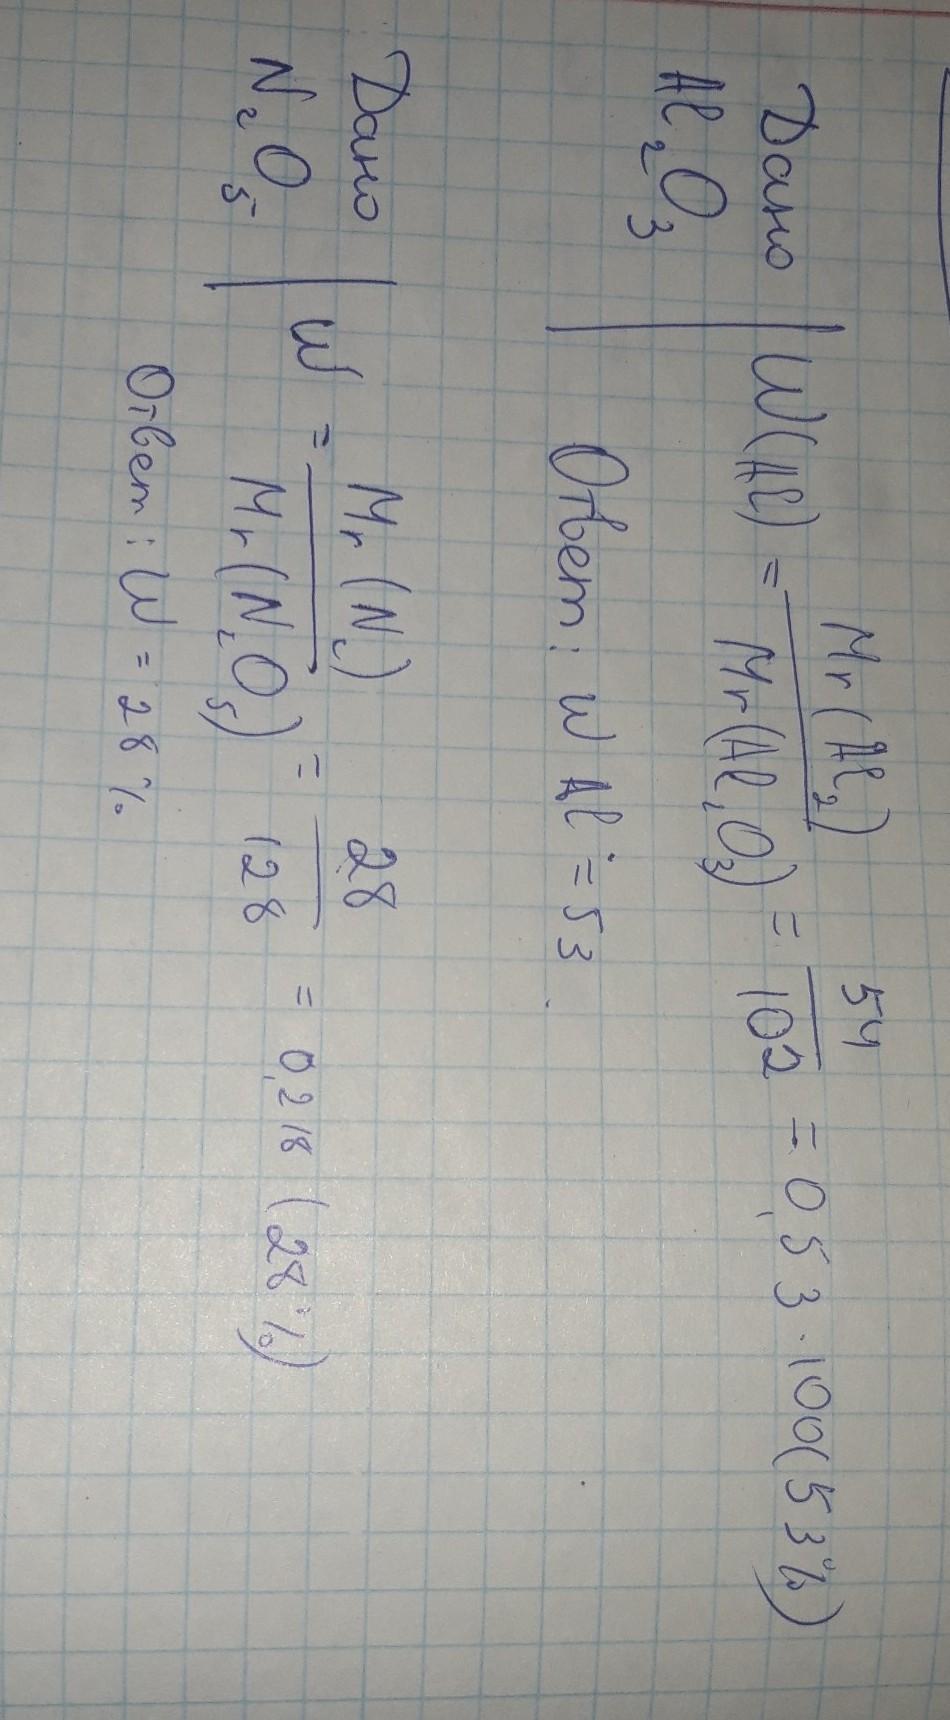 Дано
Al₂O₃
W(Al) = Mr(Al₂) / Mr(Al₂O₃) = 54 / 102 = 0,53 · 100(53%)
Ответ: W Al = 53.
Дано
N₂O₅
W = Mr(N₂) / Mr(N₂O₅) = 28 / 128 = 0,218 (28%)
Ответ: W = 28%